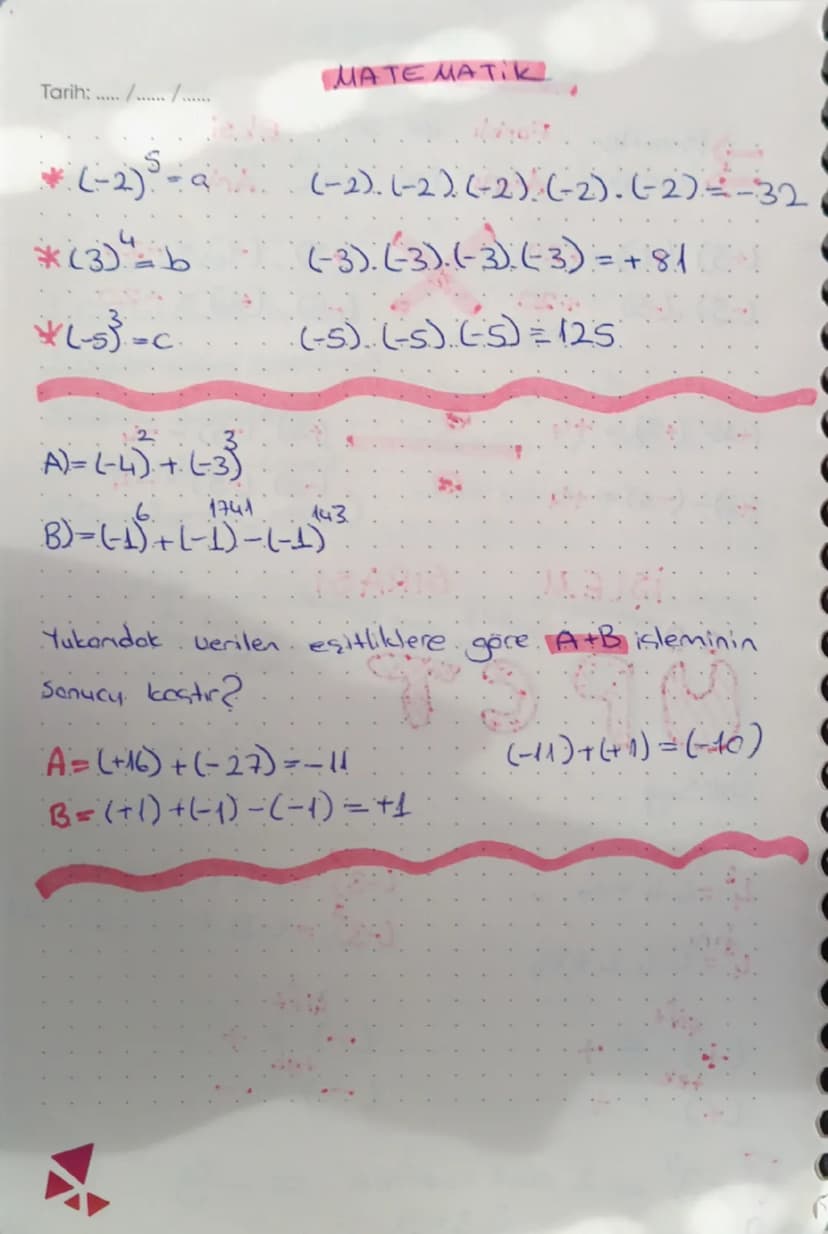 MATEMATİK
Tarih: ..... /...... /......
* (-2)⁵ = a (-2).(-2).(-2).(-2).(-2) = -32
* (3)⁴ = b (-3).(-3).(-3).(-3) = +81
* (-5)³ = c (-5).(-5).(-5) = 125
A) = (-4)² + (-3)³
B) = (-1)⁶ + (-1)¹⁷⁴¹ - (-1)¹⁴³
Yukarıdak verilen eşitliklere göre A+B işleminin
sonucu kaçtır?
A = (+16) + (-27) = -11 (-11) + (+1) = (-10)
B = (+1) + (-1) - (-1) = +1